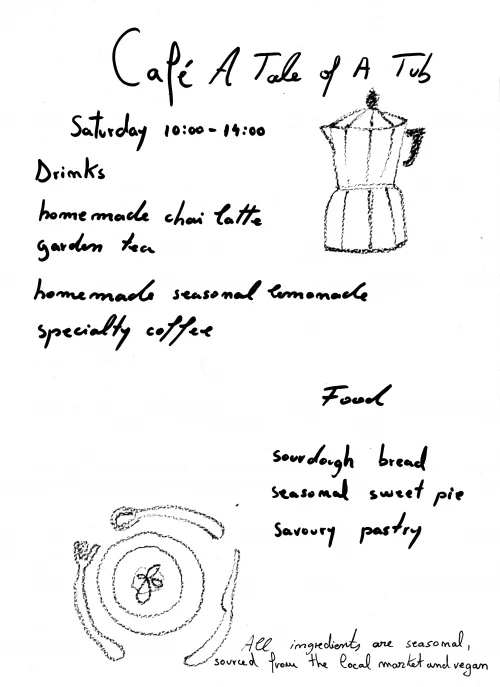 Café A Tale of A Tub
Saturday 10:00-14:00
Drinks
homemade chai latte
garden tea
homemade seasonal lemonade
specialty coffee
Food
sourdough bread
seasonal sweet pie
savoury pastry
All ingredients are seasonal,
sourced from the local market and vegan